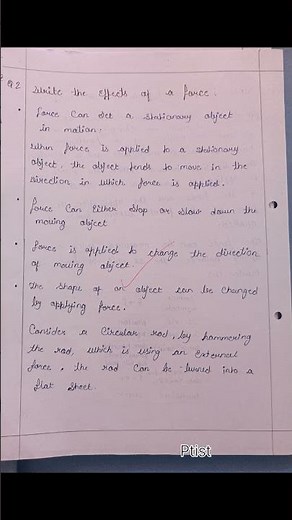 Q2 Write the effects of a force.
• Force Can set a stationary object
in motion.
When force is applied to a stationary
object, the object tends to move in the
direction in which force is applied.
• Force Can Either Stop or slow down the
moving object
• Force is applied to change the direction
of moving object.
• The shape of an object can be changed
by applying force.
Consider a Circular rod, by hammering
the rod, which is using an External
force, the rod Can be turned into a
flat Sheet.
Ptist